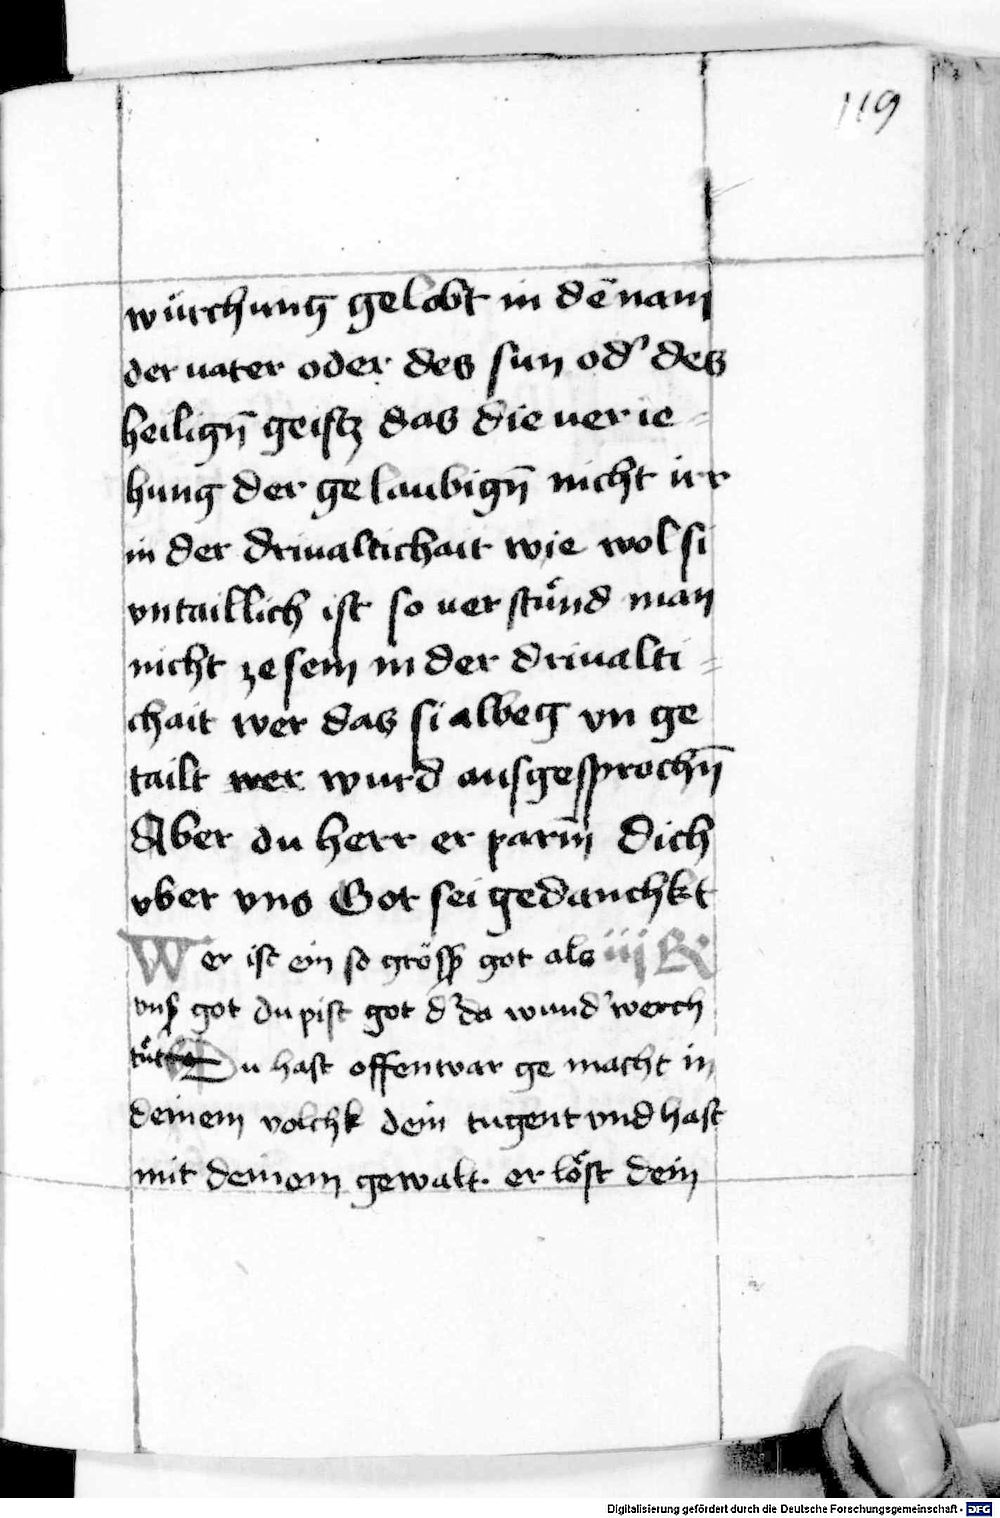 119
würchung̅ gelobt in dē nam
der uater oder des sun od' des
heilign̅ geistz das die uer ie =
hung der gelaubign̅ nicht irr
in der driualtichait wie wol si
vntaillich ist so uerstu̇nd man
nicht ze sein in der driualti =
chait wer das si albeg vn ge
tailt wer wurd ausgesprochn̅
Aber du herr er parm̅ dich
vber vns Got sei gedanchkt
Wer ist ein so gröss got als iij R
vns got du pist got d' da wund' werch
tu̇t Du hast offenwar ge macht in
deinem volchk dein tugent vnd hast
mit deinem gewalt. er löst dein
Digitalisierung gefördert durch die Deutsche Forschungsgemeinschaft - DFG